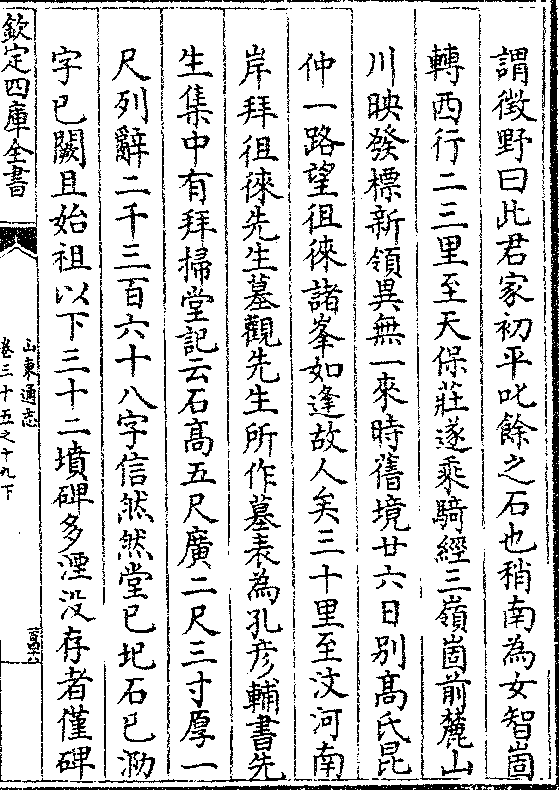 謂徴野曰此君家初平叱餘之石也稍南為女智崮
轉西行二三里至天保莊遂乘騎經三嶺崮前麓山
川映發標新領異無一來時舊境廿六日別髙氏昆
仲一路望徂徠諸峯如逢故人矣三十里至汶河南
岸拜徂徠先生墓觀先生所作墓表為孔彦輔書先
生集中有拜掃堂記云石髙五尺廣二尺三寸厚一
尺列辭二千三百六十八字信然然堂已圯石已泐
字已闕且始祖以下三十二墳碑多湮没存者僅碑
欽定四庫全書
山東通志
卷三十五之十九下